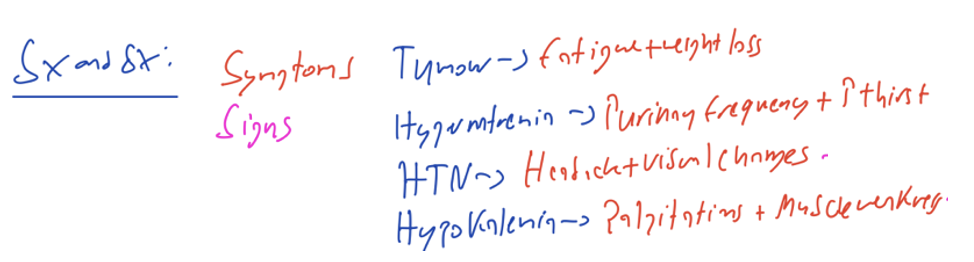 Sx and Sx: Symptoms Tumour -> Fatigue + weight loss
Signs Hypernatremia -> ↑ urinary frequency + ↑ thirst
HTN -> Headache + visual changes.
Hypokalemia -> Palpitations + Muscle weakness.